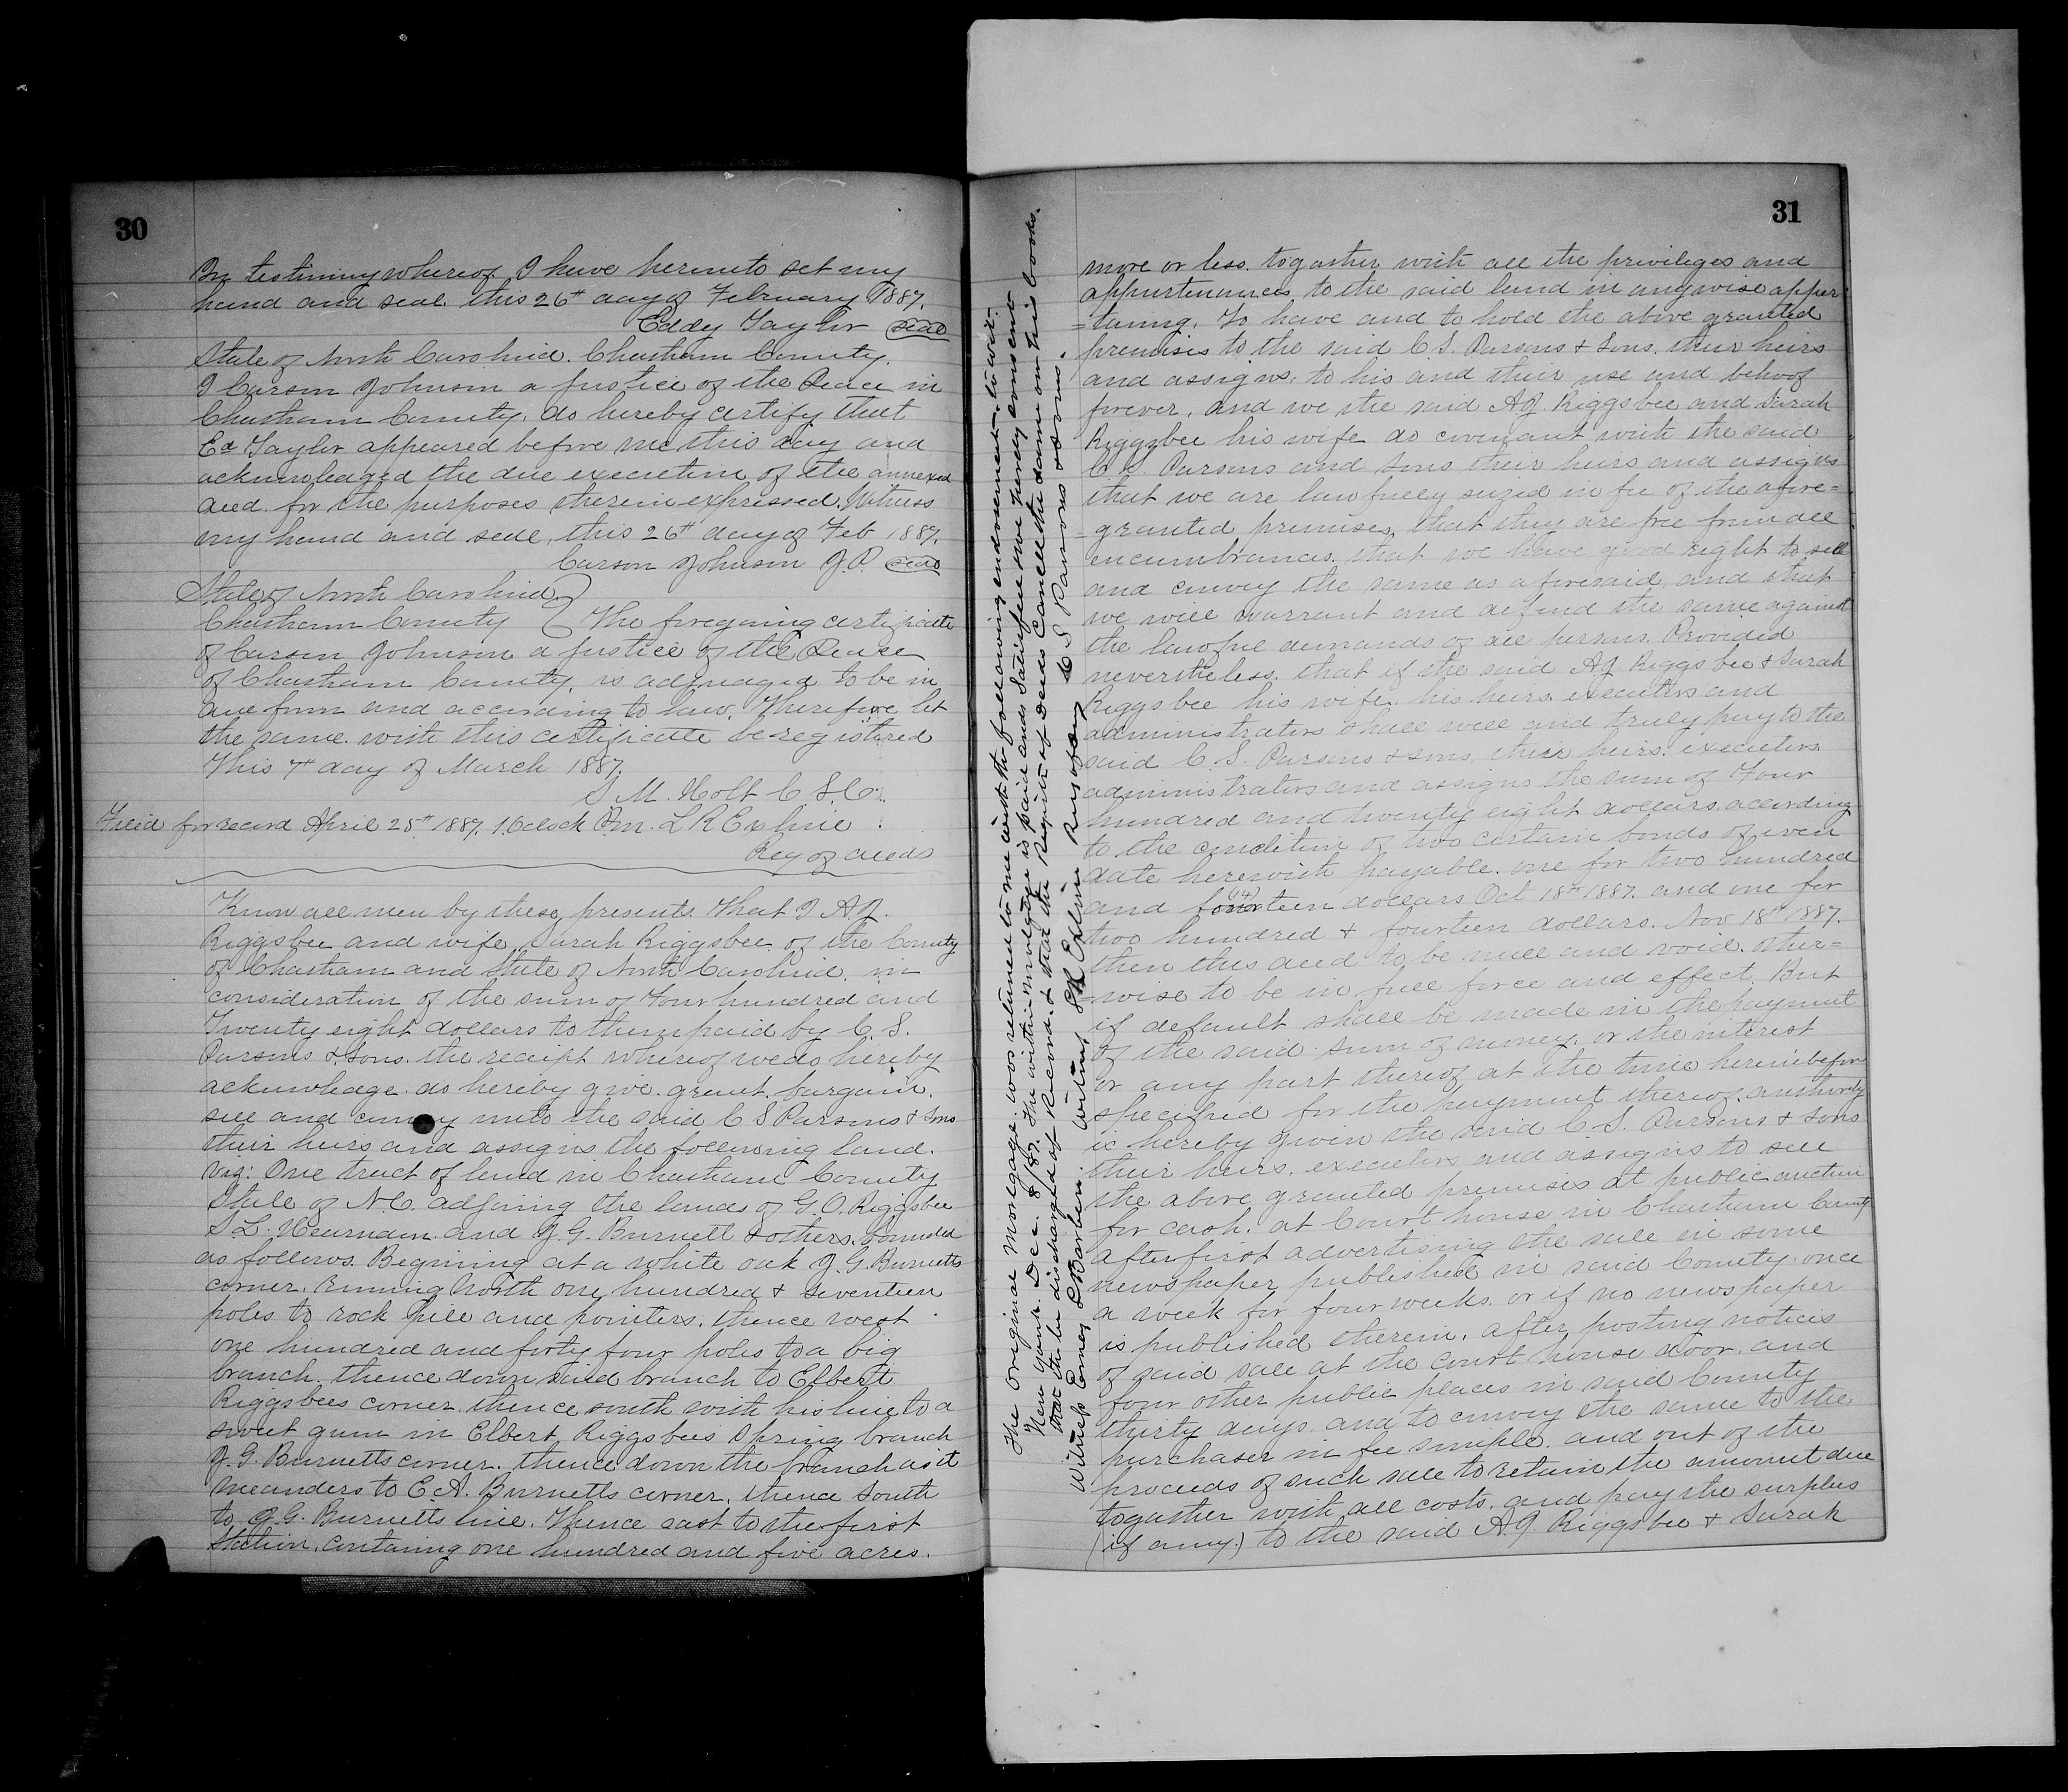 30
In testimony whereof I have hereunto set my
hand and seal this 26th day of February 1887.
Eddy Taylor (seal)
State of North Carolina. Chatham County.
I Carson Johnson a Justice of the Peace in
Chatham County, do hereby certify that
Ed Taylor appeared before me this day and
acknowledged the due execution of the annexed
deed for the purposes therein expressed. Witness
my hand and seal, this 26th day of Feb 1887.
Carson Johnson J.P. (seal)
State of North Carolina }
Chatham County } The foregoing certificate
of Carson Johnson a Justice of the Peace
of Chatham County, is adjudged to be in
due form and according to law. Therefore let
the same with this certificate be registered
This 7th day of March 1887.
S M. Holt C S.C.
Filed for record April 28th 1887. 1 Oclock Pm. L R Exline
Reg of deeds
Know all men by these presents. That I A.J.
Riggsbee and wife Sarah Riggsbee of the County
of Chatham and State of North Carolina. in
consideration of the sum of Four hundred and
Twenty eight dollars to them paid by C. S.
Parsons & Sons. the receipt whereof we do hereby
acknowledge. do hereby give. grant. bargain.
sell and convey unto the said C S Parsons & Sons
their heirs and assigns the following land.
viz: One tract of land in Chatham County
State of N.C. adjoining the lands of G.O. Riggsbee
S L. Hearndon and J.G. Burnett & others. bounded
as follows. Begining at a white oak J.G. Burnetts
corner. Running North one hundred & seventeen
poles to rock pile and pointers. thence west
one hundred and forty four poles to a big
branch. thence down said branch to Elbert
Riggsbees corner. thence south with his line to a
sweet gum in Elbert Riggsbees Spring branch
J.G. Burnetts corner. thence down the branch as it
meanders to E.A. Burnetts corner. thence South
to J.G. Burnetts line. Thence east to the first
station, contaning one hundred and five acres.
The original Mortgage was returned to me with the following endorsement, to wit:
New York. Dec. 8/87. The within mortgage is paid and satisfied & we hereby consent
that it be discharged of Record. & that the Register of deeds Cancell the same on his books.
C S Parsons & Sons.
31
more or less. togather with all the privileges and
appurtenances to the said land in anywise apper
=taning. To have and to hold the above granted
premises to the said C.S. Parsons & Sons. their heirs
and assigns. to his and their use and behoof
forever. and we the said A.J. Riggsbee and Sarah
Riggsbee his wife do covenant with the said
C S. Parsons and Sons their heirs and assigns
that we are lawfully seized in fee of the afore=
=granted premises, that they are free from all
encumbrances. that we have good right to sell
and convey the same as aforesaid and that
we will warrant and defend the same against
the lawful demands of all persons. Provided
nevertheless. that if the said A.J. Riggsbee & Sarah
Riggsbee his wife. his heirs. executors and
administrators shall well and truly pay to the
said C.S. Parsons & sons. their heirs. executors
administrators and assigns the sum of Four
hundred and twenty eight dollars. according
to the condition of two certain bonds of even
date herewith payable. one for two hundred
and fourteen (14) dollars Oct 18th 1887. and one for
two hundred & fourteen dollars. Nov 18th 1887.
then this deed to be null and void. other=
=wise to be in full force and effect. But
if default shall be made in the payment
of the said sum of money. or the interest
or any part thereof at the time hereinbefore
specified for the payment thereof. authority
is hereby given the said C.S. Parsons & sons
their heirs. executors and assigns to sell
the above granted premises at public auction
for cash. at Court house in Chatham County
after first advertising the sale in some
newspaper published in said County. once
a week for four weeks. or if no newspaper
is published therein. after posting notices
of said sale at the court house door. and
four other public places in said County
thirty days. and to convey the same to the
purchaser in fee simple. and out of the
proceeds of such sale to retain the amount due
togather with all costs. and pay the surplus
(if any.) to the said A.J Riggsbee & Sarah